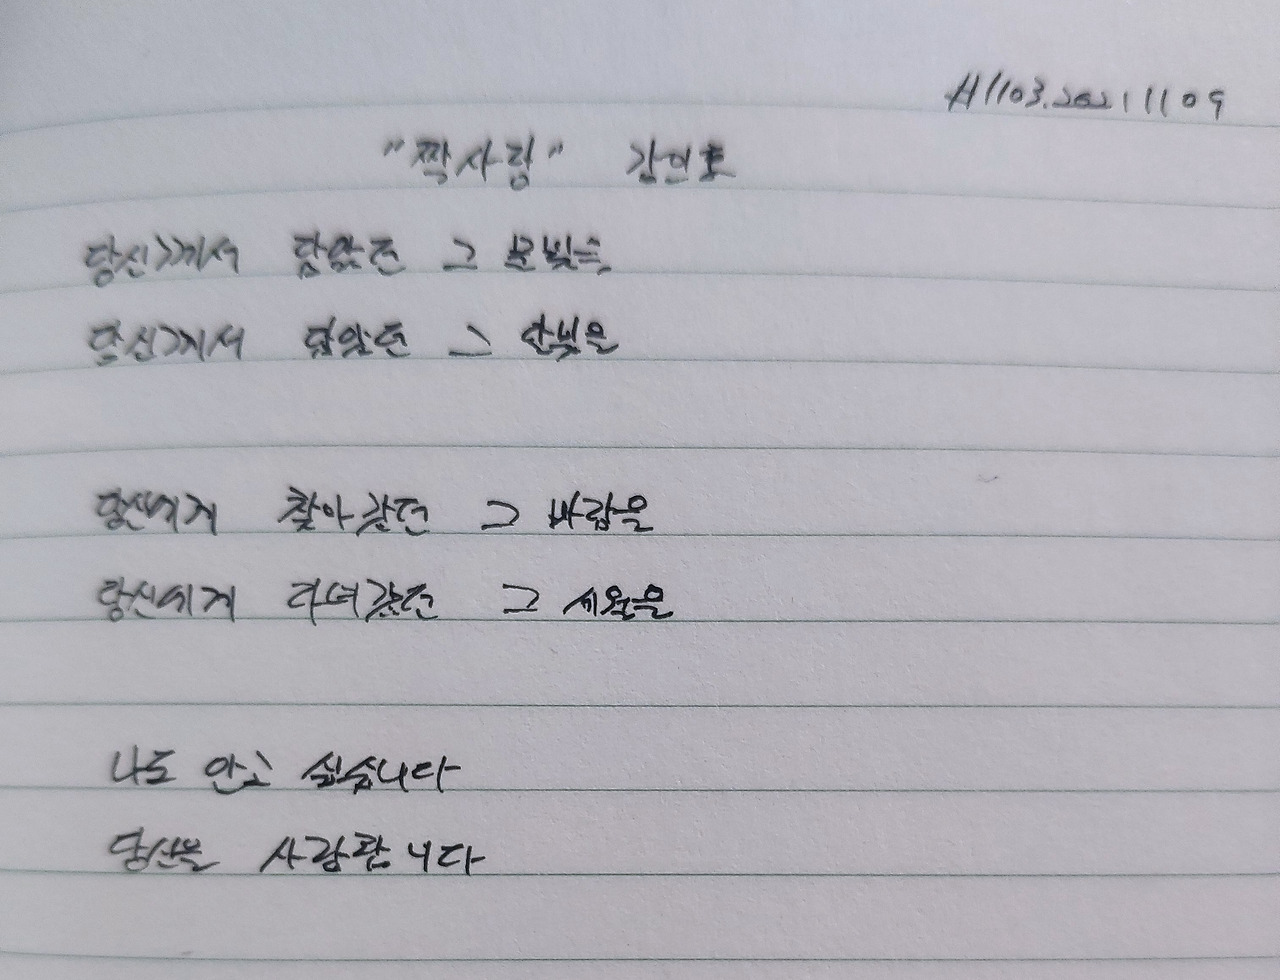 #1103.20211109
"짝사랑" 김인호
당신께서 담았던 그 눈빛을
당신께서 담았던 그 달빛을
당신에게 찾아갔던 그 바람을
당신에게 다녀갔던 그 세월을
나도 안고 싶습니다
당신을 사랑합니다